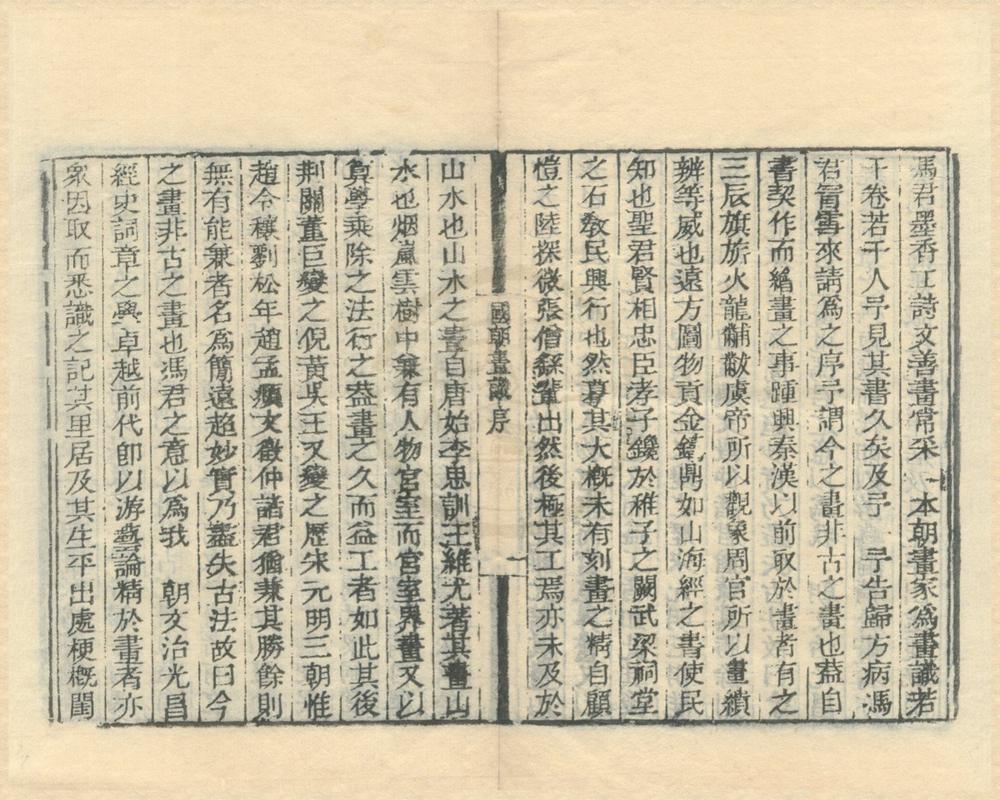 馮君墨香工詩文善畫常采　本朝畫家爲畫識若
干卷若干人予見其書久矣及予　予告歸方病馮
君冒雪來請爲之序予謂今之畫非古之畫也蓋自
書契作而繪畫之事踵興秦漢以前取於畫者有之
三辰旗旂火龍黼黻虞帝所以觀象周官所以畫繢
辨等威也遠方圖物貢金鑄鼎如山海經之書使民
知也聖君賢相忠臣孝子鑱於稚子之闕武梁祠堂
之石敎民興行也然尋其大槪未有刻畫之精自顧
愷之陸探微張僧繇輩出然後極其工焉亦未及於
國朝畫識序
一
山水也山水之畫自唐始李思訓王維尤著其畫山
水也烟嵐雲樹中兼有人物宮室而宮室界畫又以
算學乗除之法行之蓋畫之久而益工者如此其後
荆關董巨變之倪黃吳王又變之歷宋元明三朝惟
趙令穰劉松年趙孟頫文徵仲諸君猶兼其勝餘則
無有能兼者名爲簡遠超妙實乃盡失古法故曰今
之畫非古之畫也馮君之意以爲我　朝文治光昌
經史詞章之學卓越前代卽以游藝論精於畫者亦
衆因取而悉識之記其里居及其生平出處梗槪閨